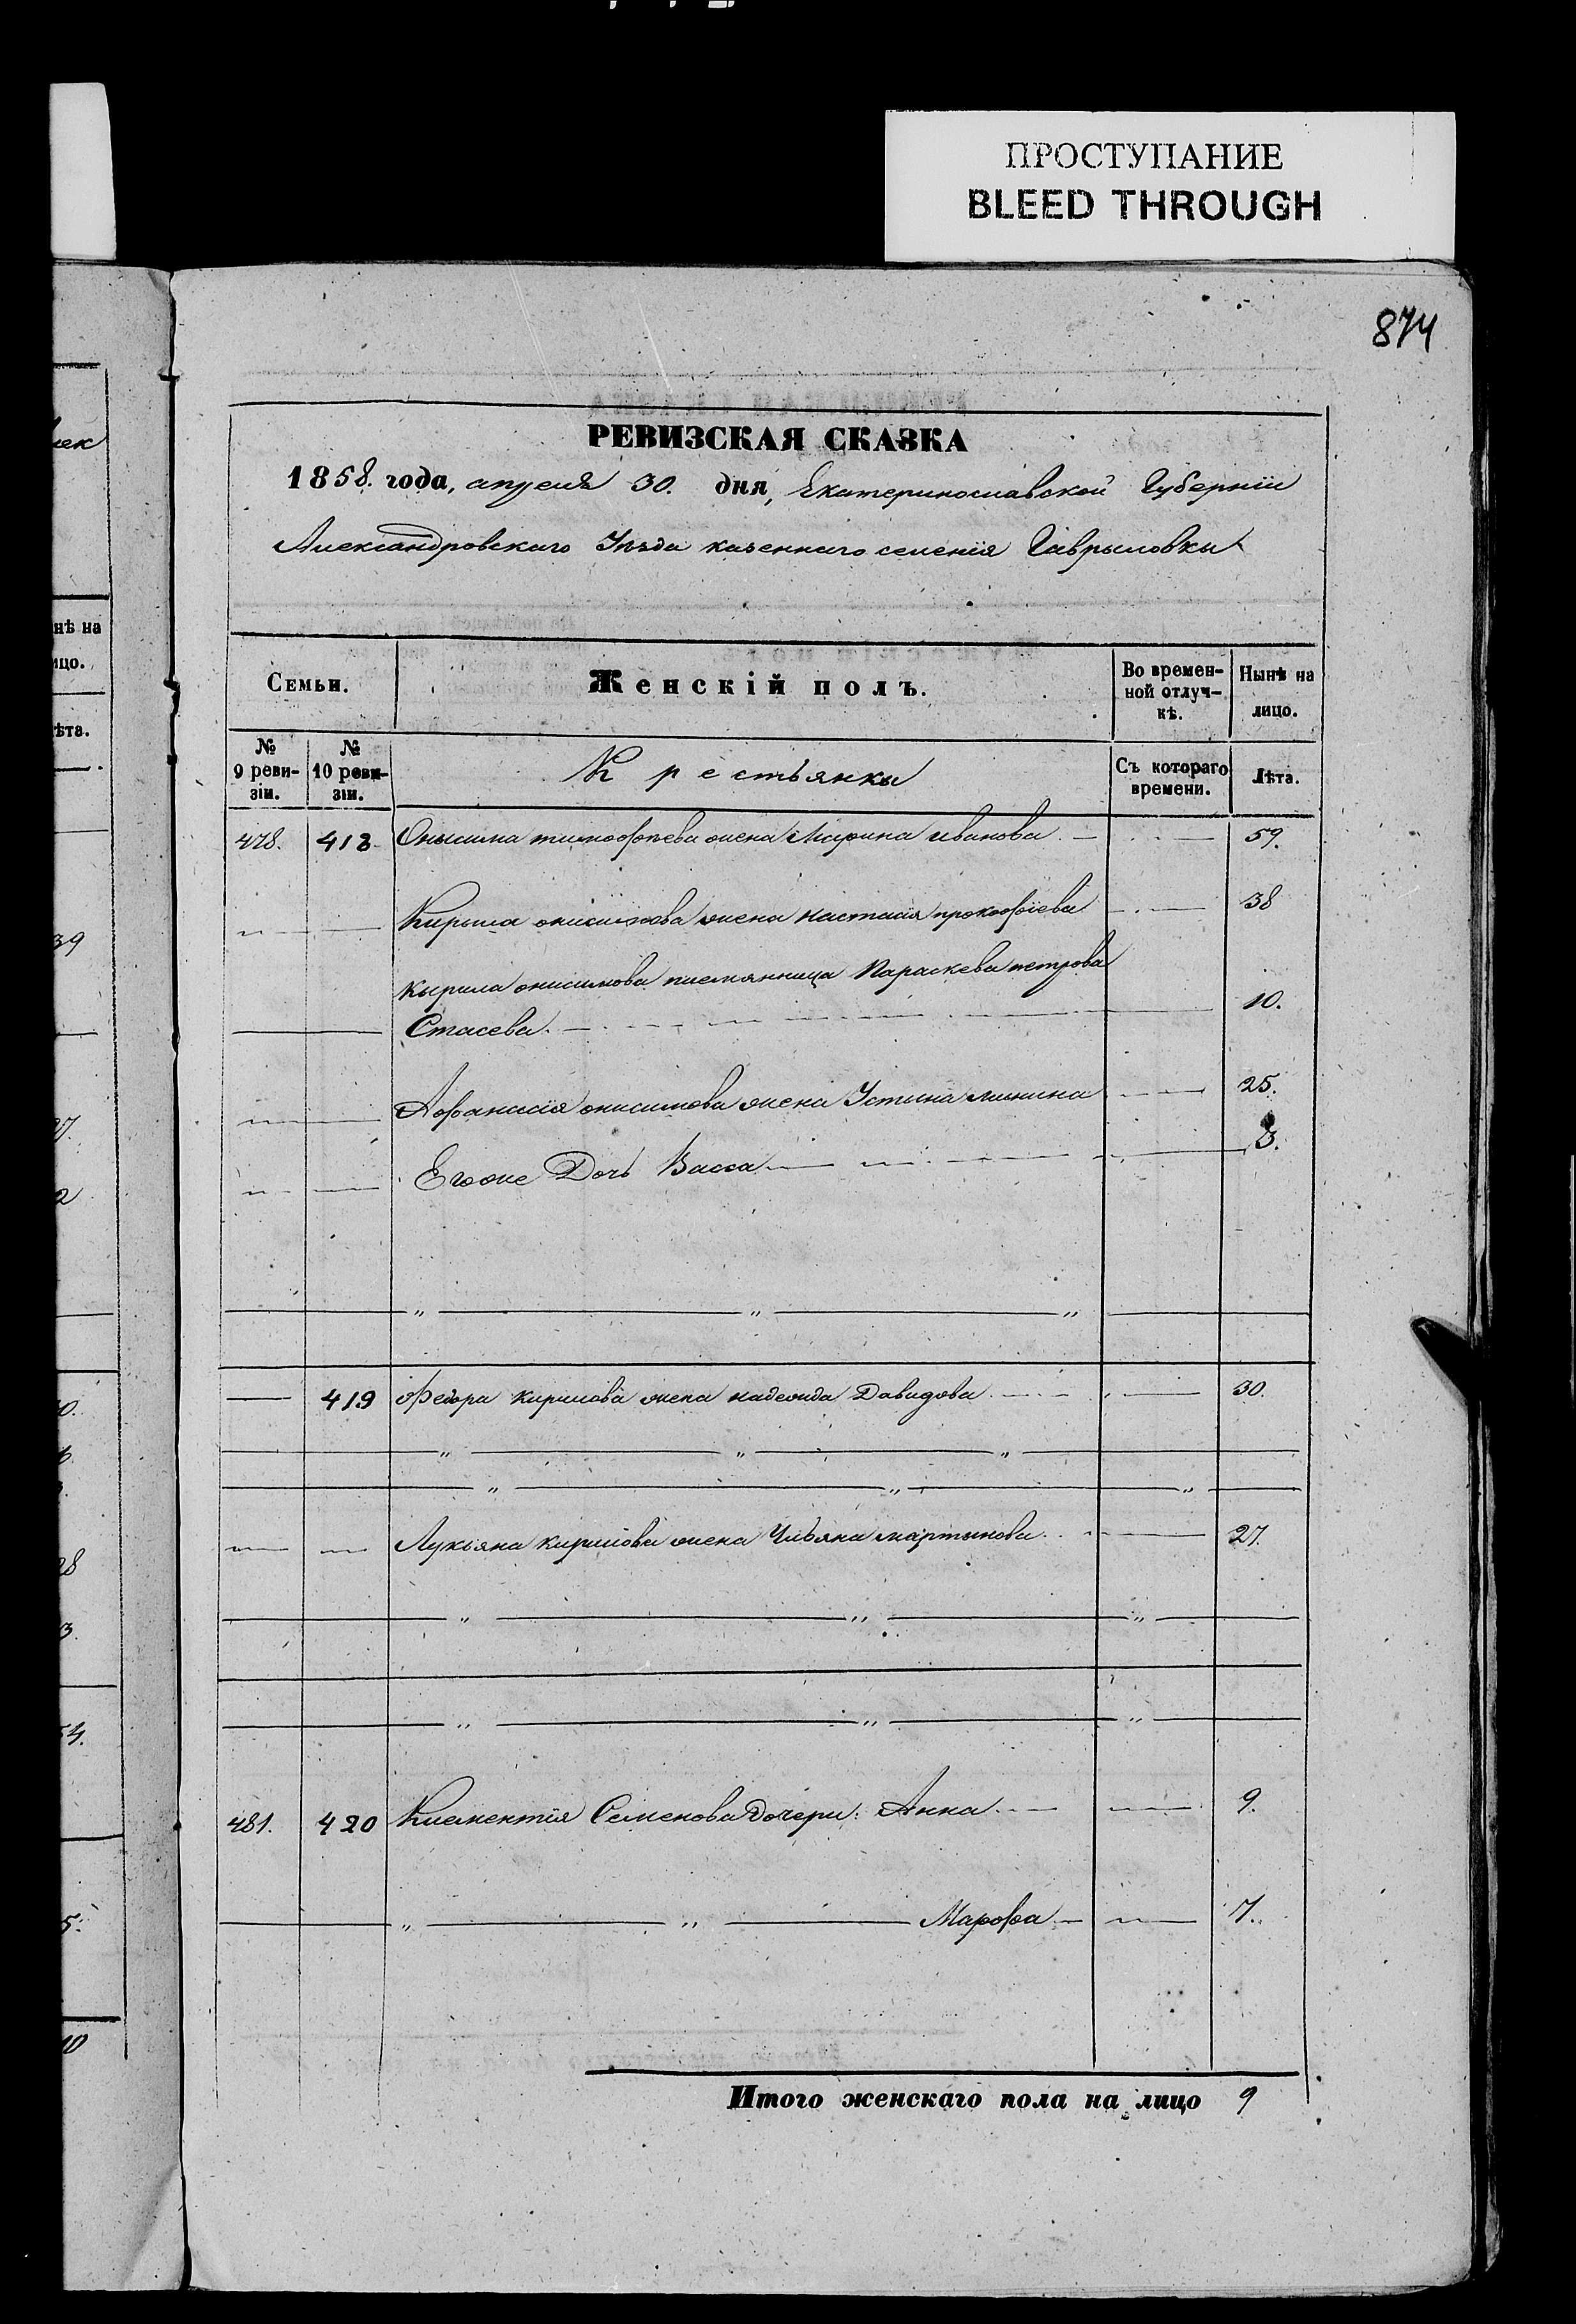 ПРОСТУПАНИЕ
BLEED THROUGH
874
РЕВИЗСКАЯ СКАЗКА
1858. года, апреля 30. дня, Екатеринославской Губерніи
Александровскаго Уѣзда казеннаго селенія Гаврыловки
лек
Семьи.
Женскій полъ.
Во времен-
ной отлуч-
кѣ.
Нынѣ на
лицо.
нѣ на
ицо.
ѣта.
№
9 реви-
зіи.
№
10 реви-
зіи.
Крестьянки
Съ котораго
времени.
Лѣта.
478. 418 Онысима тимофѣева жена Марина иванова 59.
Кирыла онисимова жена настасія прокофіева 38
39
Кырила онисимова племянница Параскева петрова
Стасева. 10.
Афанасія онисимова жена Устина минина 25.
27.
Егоже Дочь Васса 3.
2
419 Федора кирилова жена надежда Давидова 30.
Лукьяна кирилова жена Ульяна мартынова 27.
28
3.
54.
481. 420 Климентія Семенова дочери: Анна 9.
Марфа 7.
5.
10
Итого женскаго пола на лицо 9